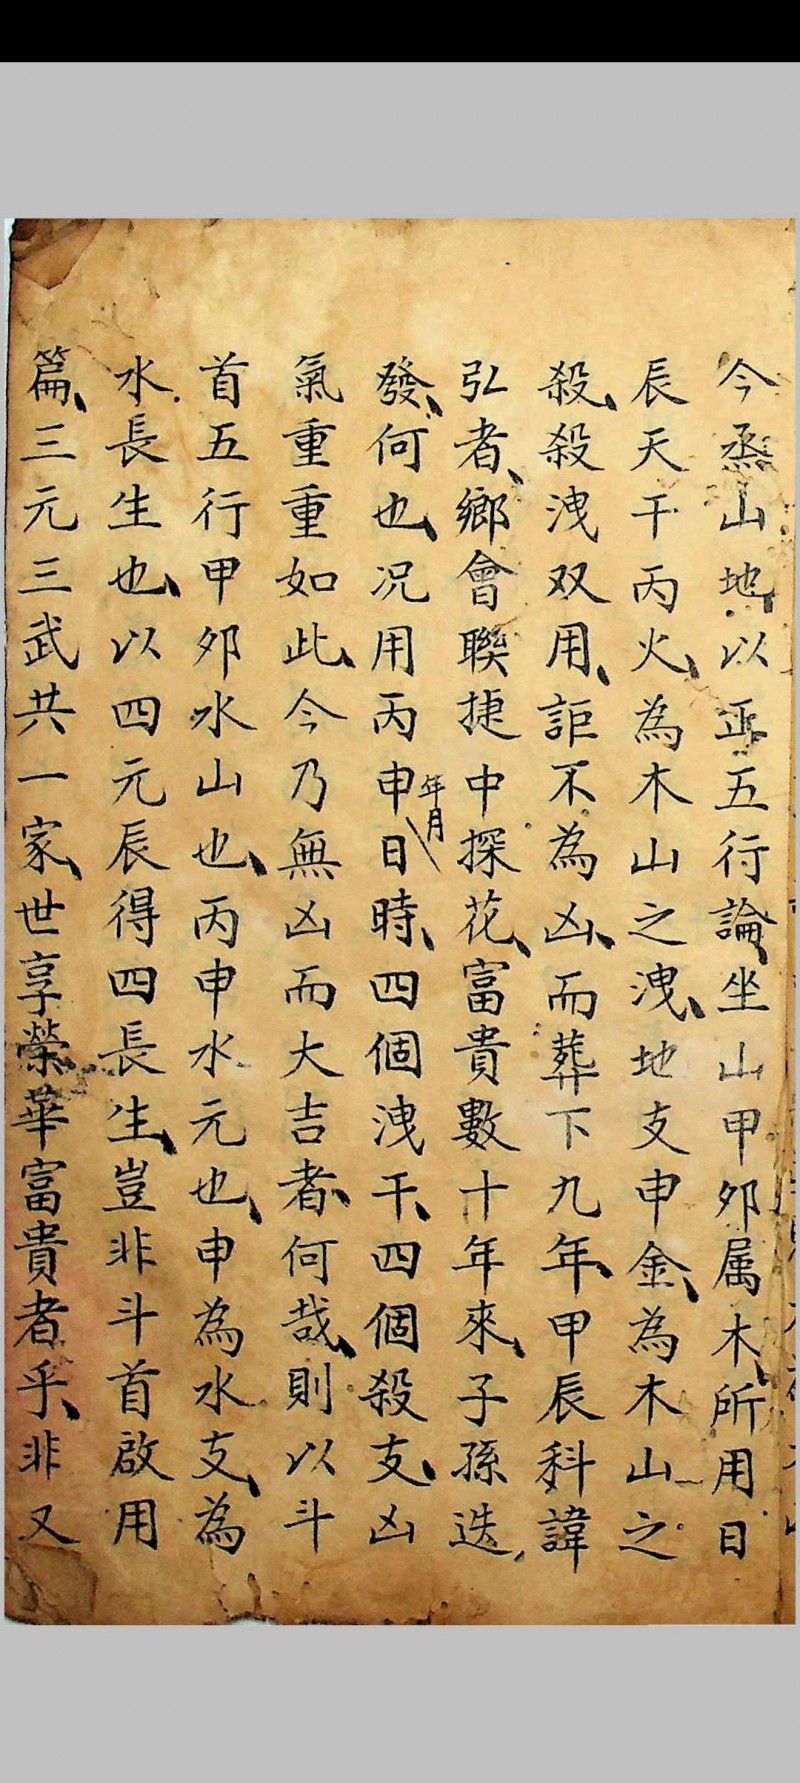 今烝山地以正五行論坐山甲卯属木所用日
辰天干丙火為木山之洩地支申金為木山之
殺殺洩双用詎不為凶而葬下九年甲辰科諱
弘者鄉會聯捷中探花富貴數十年來子孫迭
發何也况用丙申年月日時四個洩干四個殺支凶
氣重重如此今乃無凶而大吉者何哉則以斗
首五行甲卯水山也丙申水元也申為水支為
水長生也以四元辰得四長生豈非斗首啟用
篇三元三武共一家世享榮華富貴者乎非又